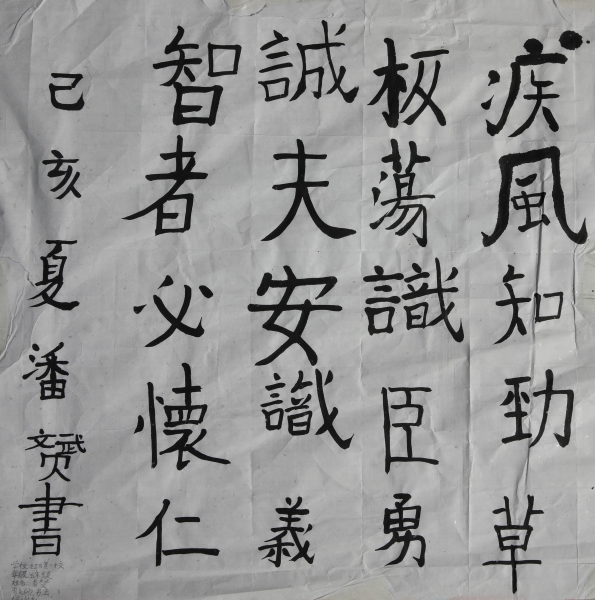 疾風知勁草
板蕩識臣勇
誠夫安識義
智者必懷仁
己亥夏潘赟書